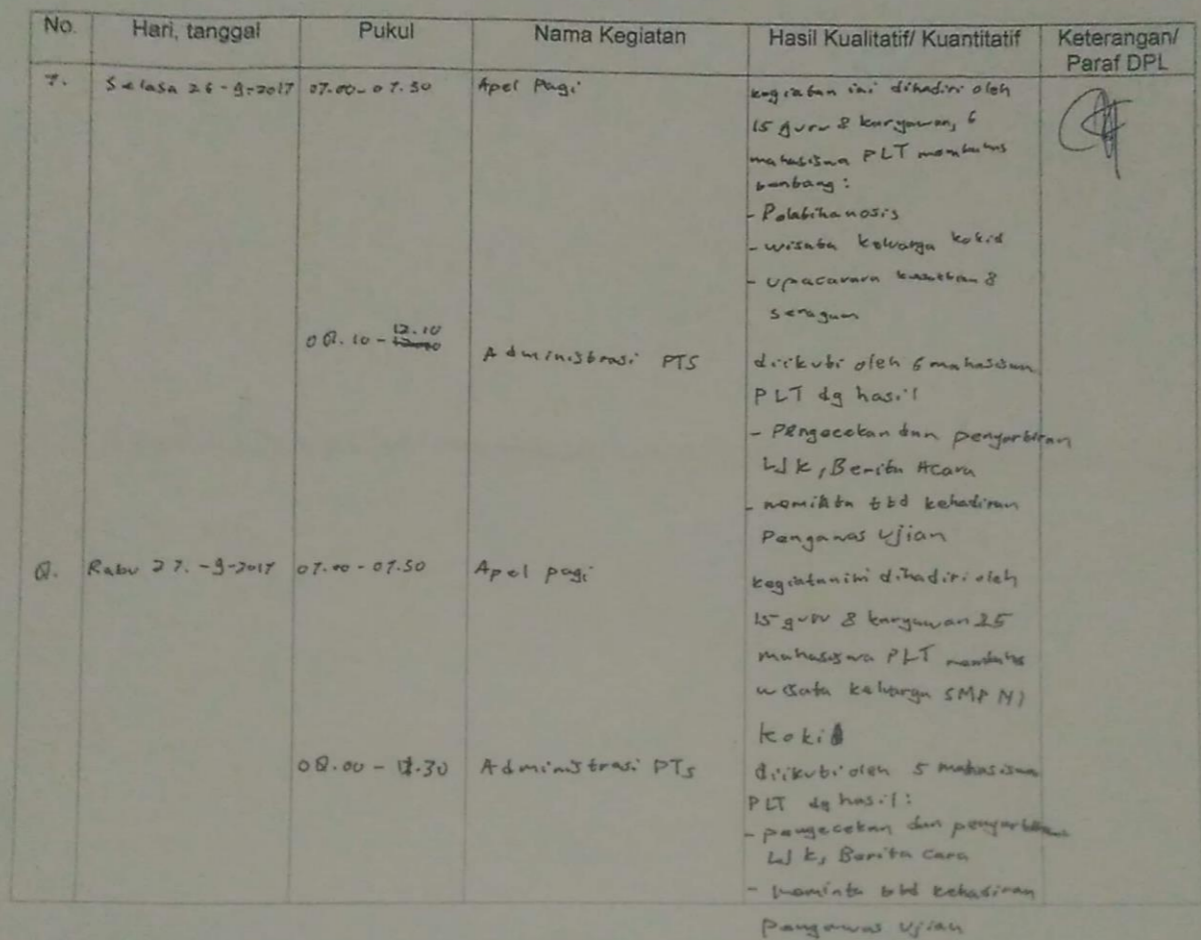 No. Hari, tanggal Pukul Nama Kegiatan Hasil Kualitatif/ Kuantitatif Keterangan/
Paraf DPL
7. Selasa 26-9-2017 07.00-07.50 Apel Pagi kegiatan ini dihadiri oleh
15 guru 8 karyawan, 6
mahasiswa PLT membahas
- 
- wisata keluarga kokid
- upacara 8
seragam
08.10 - 12.10 Administrasi PTS diikuti oleh 6 mahasiswa
PLT dg hasil
- Pengecekan dan penyortiran
LJK, Berita Acara
- ttd kehadiran
Pengawas Ujian
8. Rabu 27.-9-2017 07.00 - 07.50 Apel pagi kegiatan ini dihadiri oleh
15 guru 8 karyawan
mahasiswa PLT membahas
wisata keluarga SMP N 1
koki
08.00 - Administrasi PTS diikuti oleh 5 mahasiswa
PLT dg hasil:
- pengecekan dan penyortiran
LJK, Berita cara
- meminta ttd kehadiran
Pengawas Ujian